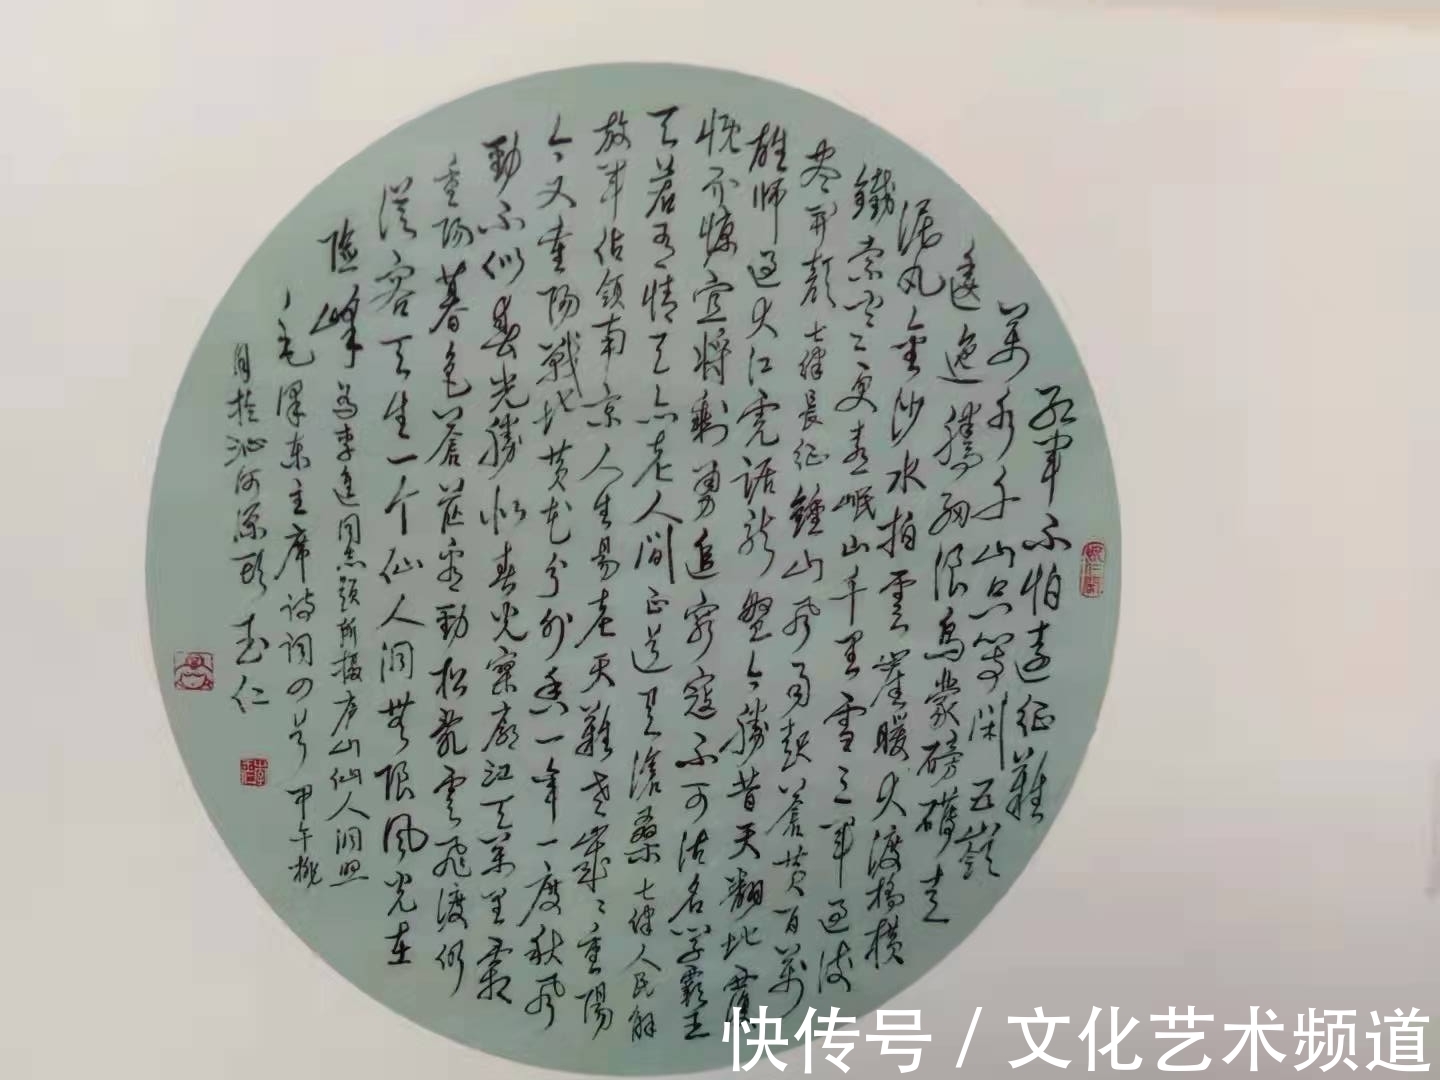 红军不怕遠征難
萬水千山只等闲五嶺
逶迤腾细浪乌蒙磅礴走
泥丸金沙水拍雲崖暖大渡橋横
鐵索寒更喜岷山千里雪三军過後
尽开颜 七律長征 鍾山风雨起蒼黄百萬
雄师過大江虎踞龙盤今勝昔天翻地覆
慨而慷宜将剩勇追穷寇不可沽名学霸王
天若有情天亦老人间正道是滄桑 七律人民解
放军佔领南京 人生易老天難老歲々重陽
今又重阳戰地黄花分外香一年一度秋风
勁不似春光勝似春光寥廓江天萬里霜
重阳 暮色蒼茫看勁松乱雲飞渡仍
從容天生一个仙人洞無限风光在
險峰 为李進同志题所摄庐山仙人洞照
毛泽东主席诗词四首 甲午桃
月於沁河源頭 玉仁
快传号 / 文化艺术频道